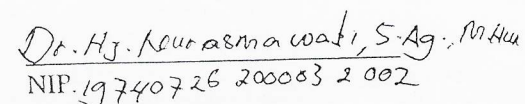 Dr. Hj. Nurasmawati, S.Ag., M.Hum
NIP. 19740726 200003 2 002